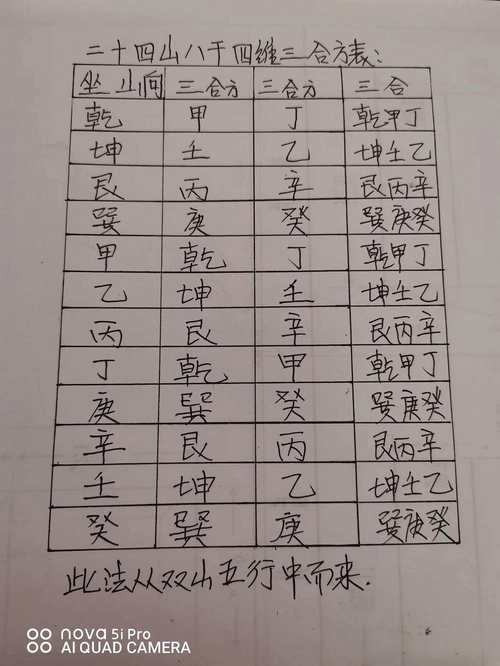 二十四山八干四维三合方表:
坐山向 三合方 三合方 三合
乾 甲 丁 乾甲丁
坤 壬 乙 坤壬乙
艮 丙 辛 艮丙辛
巽 庚 癸 巽庚癸
甲 乾 丁 乾甲丁
乙 坤 壬 坤壬乙
丙 艮 辛 艮丙辛
丁 乾 甲 乾甲丁
庚 巽 癸 巽庚癸
辛 艮 丙 艮丙辛
壬 坤 乙 坤壬乙
癸 巽 庚 巽庚癸
此法从双山五行中而来.
nova 5i Pro
AI QUAD CAMERA